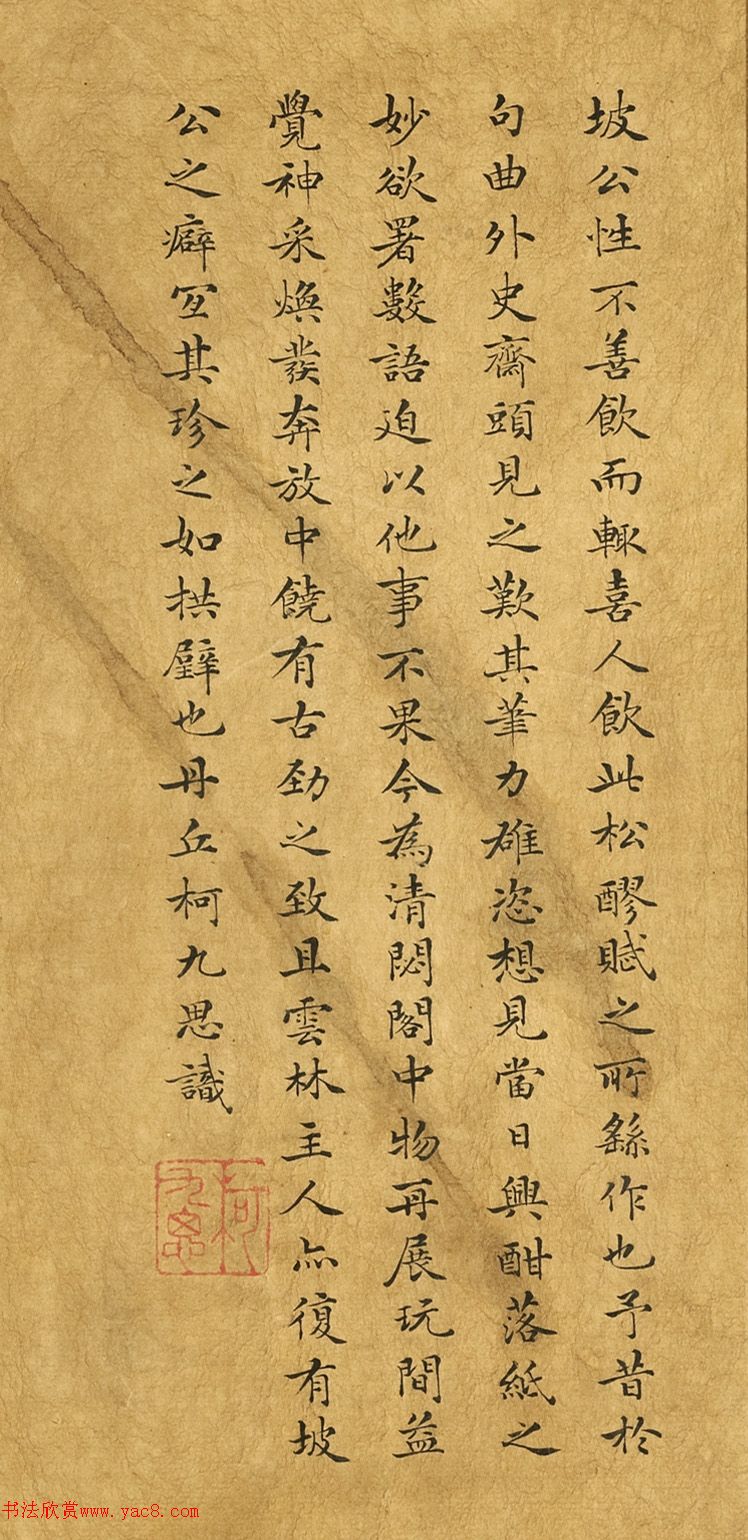 坡公性不善飲而輙喜人飲此松醪賦之所繇作也予昔於
句曲外史齋頭見之歎其筆力雄恣想見當日興酣落紙之
妙欲署數語迫以他事不果今為清閟閣中物再展玩間益
覺神采煥發奔放中饒有古勁之致且雲林主人亦復有坡
公之癖宜其珍之如拱璧也丹丘柯九思識
柯九思
书法欣赏www.yac8.com